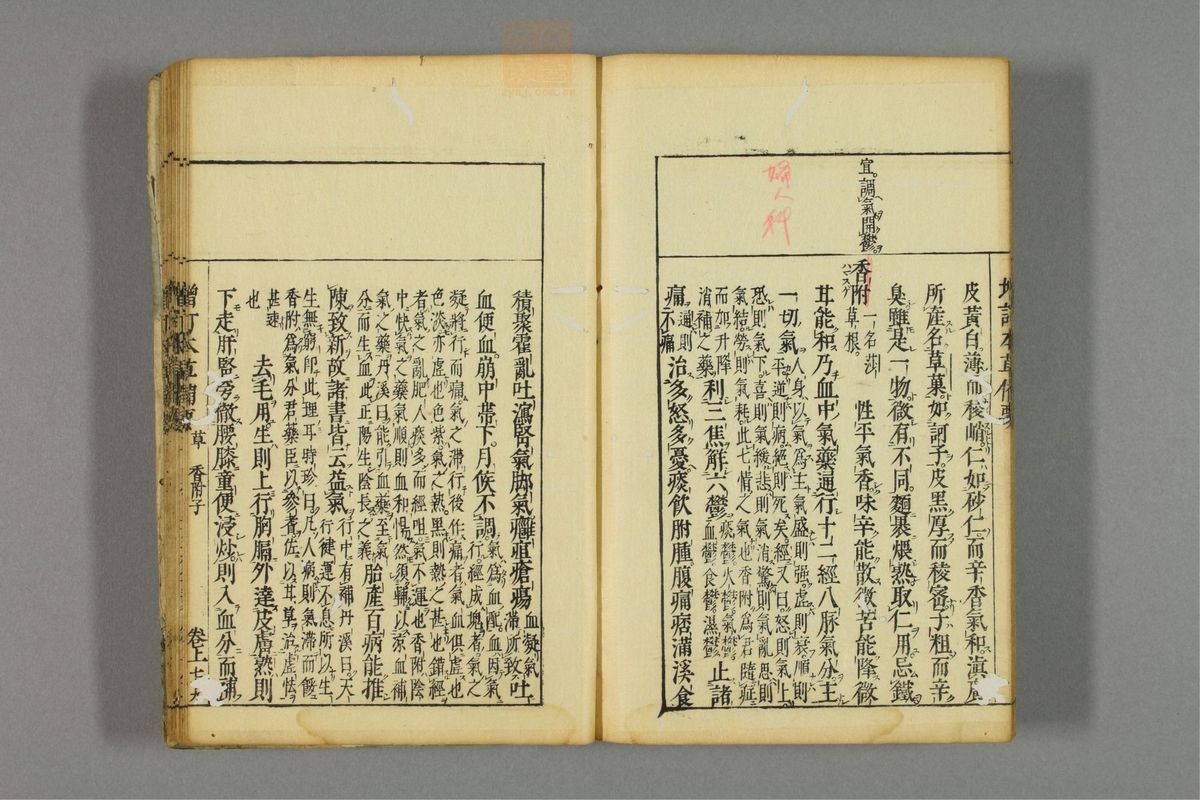 宜調氣開鬱
婦人科
皮黃白薄而稜峭仁如砂仁而辛香氣和滇廣
所產名草菓如訶子皮黑厚而稜密子粗而辛
臭雖是一物微有不同麵裹煨熟取仁用忌鐵
香附 一名莎草根 性平氣香味辛能散微苦能降微
ハマスゲ
甘能和乃血中氣藥通行十二經八脈氣分主
一切氣 人身以氣爲生氣盛則强虛則衰順則
平逆則病絕則死矣經又曰怒則氣上
恐則氣下喜則氣緩悲則氣消驚則氣亂思則
氣結勞則氣耗此七情之氣也香附爲君隨症
而加升降消補之藥 利三焦解六鬱 痰鬱火鬱氣鬱血鬱食鬱濕鬱 止諸
痛 通則不痛 治多怒多憂痰飲胕腫腹痛痞滿溪食
積聚霍亂吐瀉腎氣脚氣癰疽瘡瘍 血凝氣滯所致 吐
血便血崩中帶下月候不調 氣爲血配血因氣行經成塊者氣之
凝將行而痛氣之滯行後作痛者氣血俱虛也
色淡亦虛也色紫氣之熱黑則熱之甚也錯經
者氣之亂肥人痰多而經阻氣不運也香附陰
中快氣之藥氣順則血和暢然須輔以涼血補
氣之藥丹溪曰能引血藥至氣
分而生血此正陽生陰長之義 胎產百病能推
陳致新故諸書皆云益氣 行中有補丹溪曰天行健運不息所以生
生無窮卽此理耳時珍曰凡人病則氣滯而餒
香附爲氣分君藥臣以參芪佐以甘草治虛怯
甚速也 去毛用生則上行胸膈外達皮膚熟則
下走肝腎旁徹腰膝童便浸炒則入血分而補
增訂本草備要
草 香附子
卷上